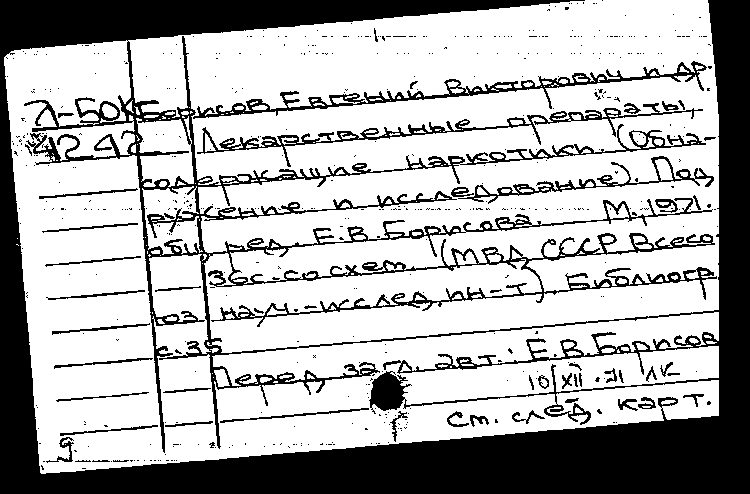 Л-БОК Борисов, Евгений Викторович и др.
4242 Лекарственные препараты,
содержащие наркотики. (Обна-
ружение и исследование). Под
общ. ред. Е.В.Борисова. М., 1971.
36с. со схем. (МВД СССР Всесо-
юз. науч.-исслед. ин-т). Библиогр.
с.35
Перед загл. авт.: Е.В.Борисов
10/XII.71 ЛК
см. след. карт.
9